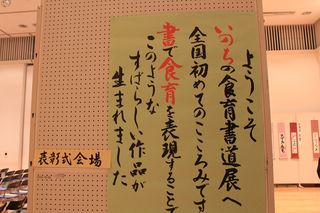 ようこそ
いのちの食育書道展へ
全国初めてのこころみです
書で食育を表現することで
このような
すばらしい作品が
生まれました
表彰式会場